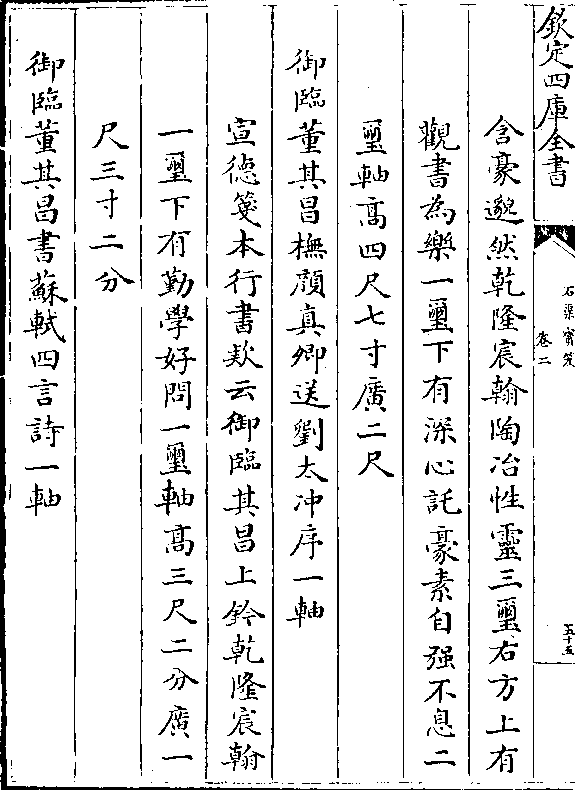 欽定四庫全書
石渠寳笈
卷二
五十五
含豪邈然乾隆宸翰陶冶性靈三璽右方上有
觀書為樂一璽下有深心託豪素自强不息二
璽軸髙四尺七寸廣二尺
御臨董其昌橅顔真卿送劉太冲序一軸
宣德箋本行書欵云御臨其昌上鈐乾隆宸翰
一璽下有勤學好問一璽軸髙三尺二分廣一
尺三寸二分
御臨董其昌書蘇軾四言詩一軸